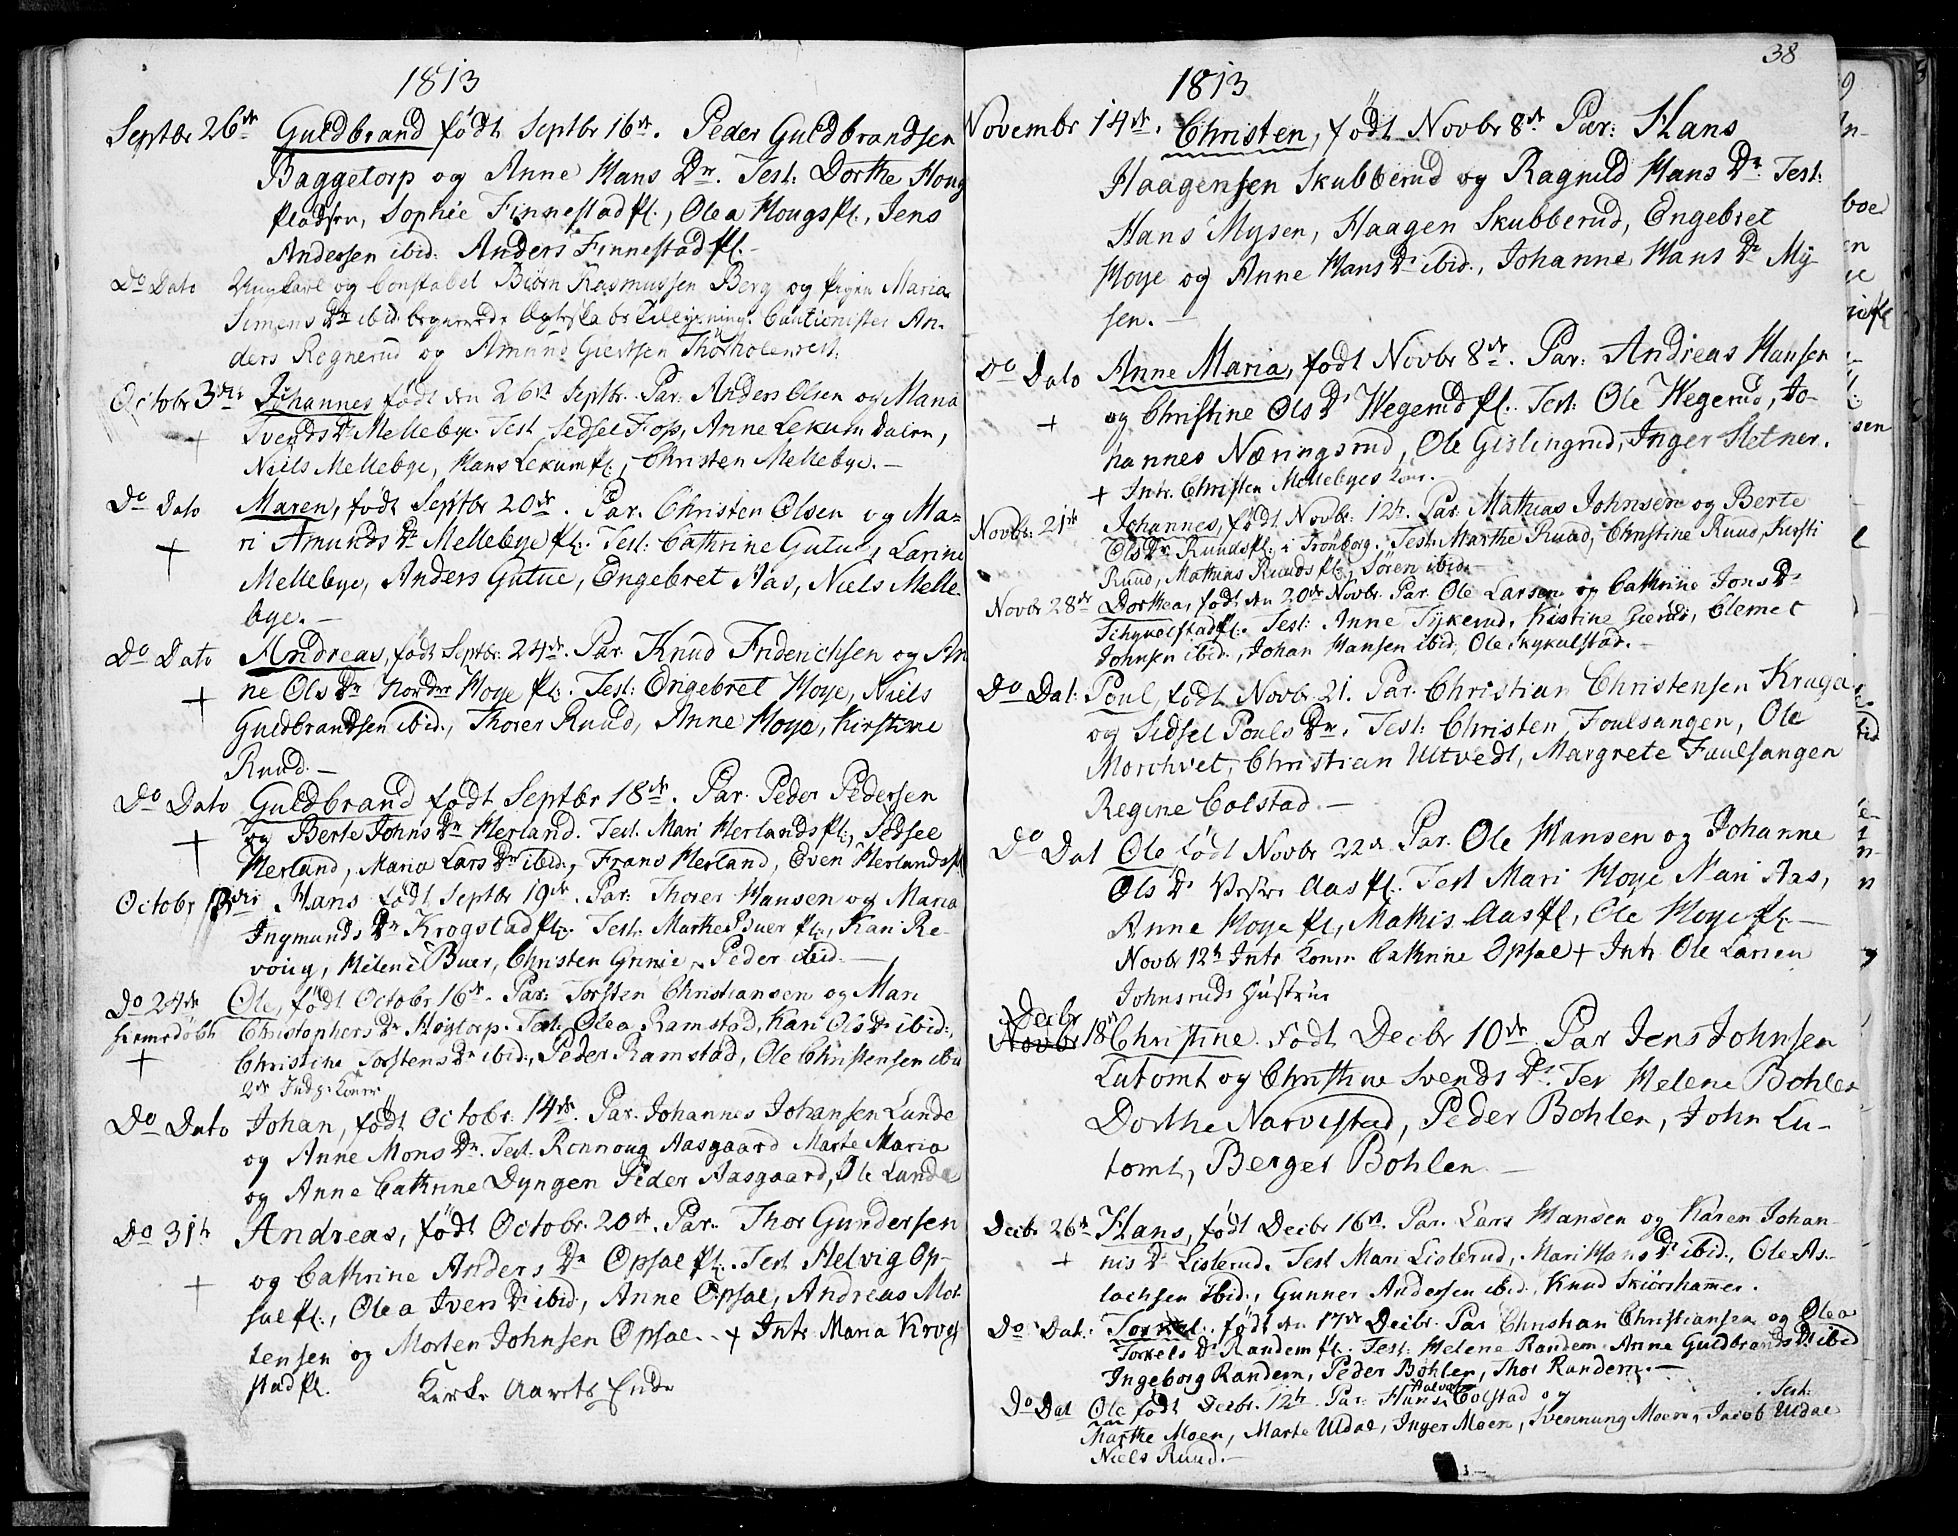 1813
Septbr 26de Guldbrand født Septbr 16de. Peder Guldbrandsen
Baggetorp og Anne Hans Dr. Test: Dorthe Houg
Pladsen, Sophie Finnestad pl., Olea Hougs pl., Jens
Andersen ibid: Anders Finnestad pl.
Do Dato Ungkarl og Constabel Biørn Rasmussen Berg og Pigen Maria
Simens Dr ibid begierede Ægteskabs Tillysning. Cautionister An-
ders Regnerud og Amund
Octobr 3die Johannes født den 26de Septbr. Par: Anders Olsen og Maria
+ Svends Dr Mellebye. Test Sedsel Foss, Anne Lekum Dalen,
Niels Mellebye, Hans Lekum pl., Christen Mellebye. —
Do Dato Maren, født Septbr 20de. Par. Christen Olsen og Ma-
+ ri Amunds Dr Mellebye pl:. Test: Cathrine Gutue, Larine
Mellebye, Anders Gutue, Engebret Aas, Niels Melle-
bye. —
Do Dato Andreas, født Septbr. 24de. Par. Knud Friderichsen og An
+ ne Ols Dr Nordre Hoye pl:. Test: Engebret Hoye, Niels
Guldbrandsen ibid., Thorer Ruud, Anne Hoye, Kirstine
Ruud. —
Do Dato Guldbrand født Septbr 18de. Par. Peder Pedersen
+ og Berte Johns Dr Herland. Test. Mari Herlands pl., Sedsel
Herland, Maria Lars Dr ibid., Frans Herland, Even Herlands pl
Octobr Hans født Septbr 19de. Par: Thorer Hansen og Maria
Ingmunds Dr Krogstad pl:. Test: Marthe Buer pl., Kari Re-
voug, Helene Buer, Christen Grinie, Peder ibid. —
Do 24de Ole, født Octobr 16de. Par: Torsten Christiansen og Mari
hiemedøbt Christophers Dr Høytorp. Test: Olea Ramstad, Kari Ols Dr ibid:,
+ Christine Torstens Dr ibid:, Peder Ramstad, Ole Christensen ibid
2de Indg: Koner
Do Dato Johan, født Octobr. 14de. Par. Johannes Johansen Lunde
og Anne Mons Dr. Test. Ronnoug Aasgaard Marte Maria
og Anne Cathrine Dyngen Peder Aasgaard, Ole Lunde
Do 31te Andreas, født Octobr. 20de. Par. Thor Gundersen
+ og Cathrine Anders Dr Opsal pl:. Test Helvig Op-
sal pl:, Olea Ivers Dr ibid, Anne Opsal, Andreas Mor-
tensen og Morten Johnsen Opsal. + Intr. Maria Krog
stad pl. Kirke Aarets Ende
38
1813
Novembr 14de. Christen, født Novbr 8de Par: Hans
Haagensen Skubberud og Ragnild Hans Dr Test:
Hans Mysen, Haagen Skubberud, Engebret
Hoye og Anne Hans Dr ibid., Johanne Hans Dr My-
sen. —
Do Dato Anne Maria, født Novbr 8de. Par: Andreas Hansen
+ og Christine Ols Dr Wegerud pl. Test: Ole Wegerud, Jo-
hannes Næringsrud, Ole Gislingrud, Inger Sletner.
+ Intr. Christen Mellebyes Kone.
Novbr. 21de Johannes, født Novbr. 12te. Par. Mathias Johnsen og Berte
Ols Dr. Ruuds pl: i Trønborg. Test: Marthe Ruud, Christine Ruud, Kirsti
Ruud, Mathias Ruuds pl., Søren ibid. —
Novbr 28de Dorthea, født den 20de Novbr. Par. Ole Larsen og Cathrine Jons Dr
pl:. Test: Anne Tykerud, Kistine Clemet
Johnsen ibid., Johan Hansen ibid, Ole —
Do Dat: Poul, født Novbr. 21. Par. Christian Christensen Kraga
og Sidsel Pouls Dr. Test: Christen Foulsangen, Ole
Morchvet, Christian Ultvedt, Margrete Fuulsangen
Regine Colstad. —
Do Dat Ole født Novbr 22de Par. Ole Hansen og Johanne
Ols Dr Vestre Aas pl. Test Mari Hoye Mari Aas,
Anne Hoye pl, Mathis Aas pl, Ole Hoye pl. —
Novbr 12te Intr Konen Cathrine Opsal + Intr Ole Larsen
Johnsruds Hustrue
Decbr
Novbr 18de Christine født Decbr 10de Par Jens Johnsen
Lutomt og Christine Svends Dr. Tes Helene Bohler
Dorthe Narvestad, Peder Bohlen, John Lu-
tomt, Berger Bohlen —
Decbr 26de Hans, født Decbr 16de. Par. Lars Hansen og Karen Johan-
+ nis Dr Listerud. Test Mari Listerud, Mari Hans Dr ibid., Ole As-
lachsen ibid., Gunner Andersen ibid., Knud Skiørshamer.
Do Dat: Torkel, født den 17de Decbr. Par Christian Christiansen og Olea
Torkels Dr Randem pl. Test: Helene Randem. Anne Guldbrands Dr ibid
Ingeborg Randem, Peder Bohler, Thor Randem. —
Do Dat Ole født Decbr. 12te Par. Hans Colstad og Test:
Marthe Moen, Marte Uldal, Inger Moen, Svennung Moen, Jacob Uldal
Niels Ruud. —